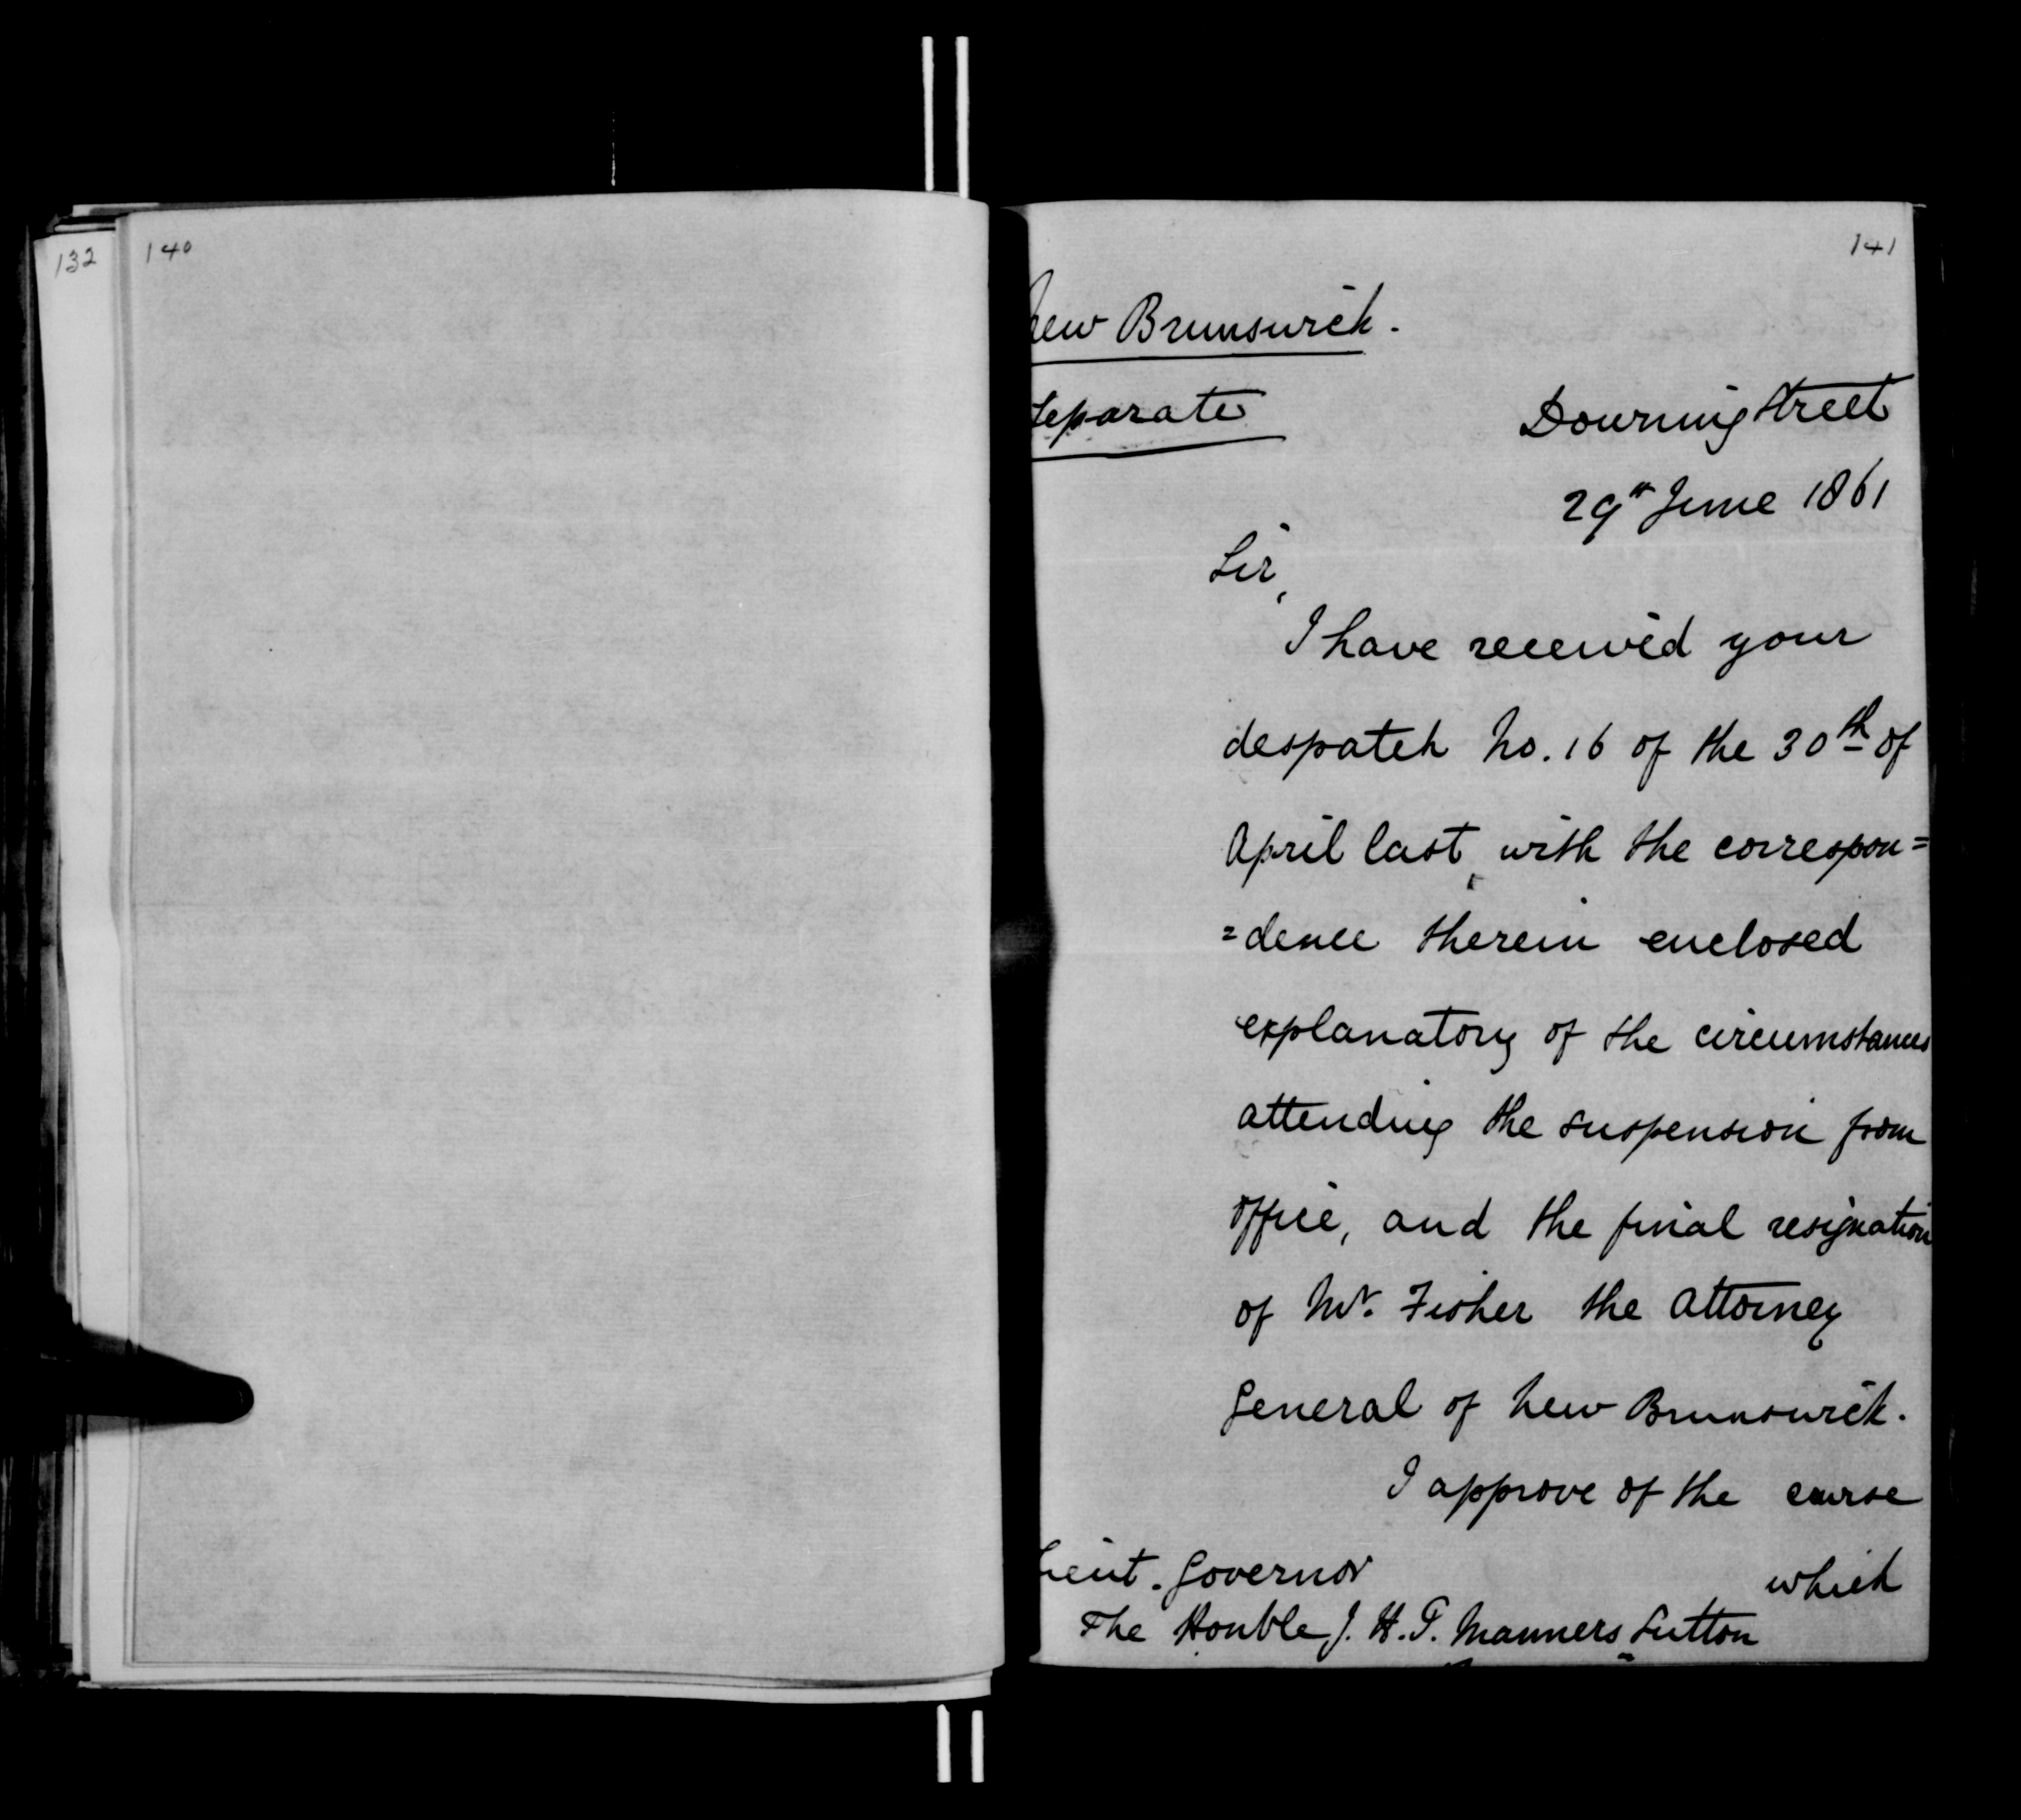 132
140
141
New Brunswick.
Separate
Downing Street
29th June 1861
Sir,
I have received your
despatch No. 16 of the 30th of
April last, with the correspon=
=dence therein enclosed
explanatory of the circumstances
attending the suspension from
office, and the final resignation
of Mr. Fisher the Attorney
General of New Brunswick.
I approve of the course
which
Lieut. Governor
The Honble J. H. T. Manners Sutton